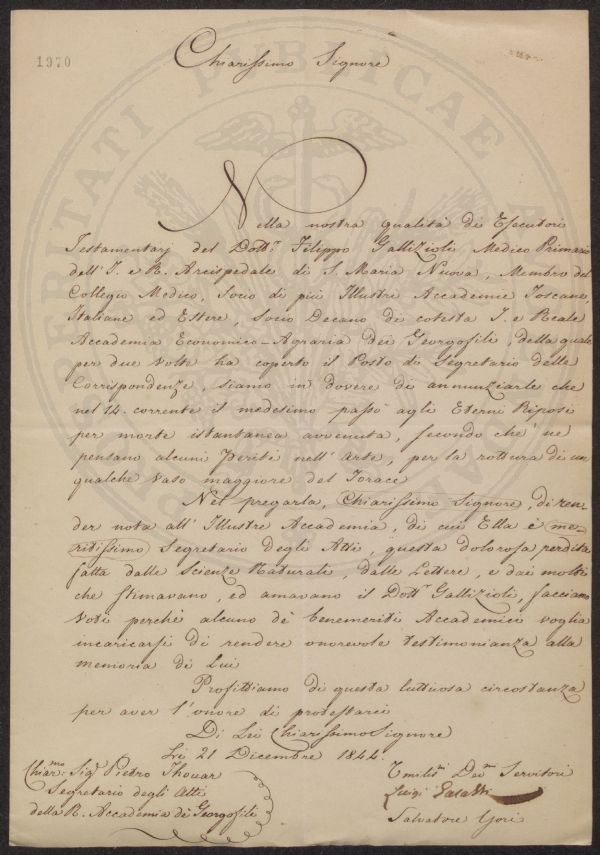 1970
Chiarissimo Signore
Nella nostra qualità di Esecutori
Testamentarj del Dott.r Filippo Gallizioli Medico Primario
dell' I. e R. Arcispedale di S. Maria Nuova, Membro del
Collegio Medico, Socio di più Illustri Accademie Toscane,
Italiane ed Estere, Socio Decano di cotesta I. e Reale
Accademia Economico-Agraria dei Georgofili, della quale
per due volte ha coperto il Posto di Segretario delle
Corrispondenze, siamo in dovere di annunziarle che
nel 14. corrente il medesimo passò agli Eterni Riposi
per morte istantanea avvenuta, secondo che ne
pensano alcuni Periti nell' Arte, per la rottura di un
qualche vaso maggiore del Torace
Nel pregarla, Chiarissimo Signore, di ren-
der nota all' Illustre Accademia, di cui Ella è me-
ritissimo Segretario degli Atti, questa dolorosa perdita
fatta dalle Scienze Naturali, dalle Lettere, e dai molti
che stimavano, ed amavano il Dott.r Gallizioli, facciamo
voti perchè alcuno de' benemeriti Accademici voglia
incaricarsi di rendere onorevole testimonianza alla
memoria di Lui
Profittiamo di questa luttuosa circostanza
per aver l' onore di protestarci
Di Lei Chiarissimo Signore
Li 21 Dicembre 1844.
Chiar.mo Sig.r Pietro Thouar
Segretario degli Atti
della R. Accademia de' Georgofili
Umilis.mi Dev.mi Servitori
Luigi
Salvatore Gori
PROSPERITATI PUBLICAE